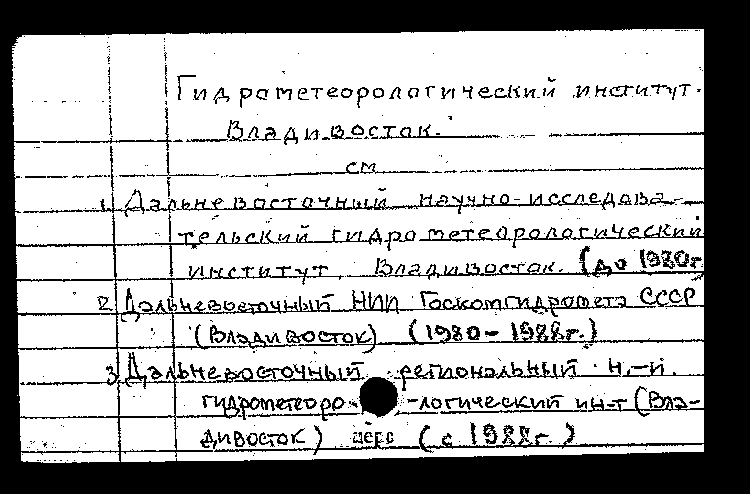 Гидрометеорологический институт.
Владивосток.
см
1. Дальневосточный научно-исследова-
тельский гидрометеорологический
институт, Владивосток. (до 1980г
2. Дальневосточный НИИ Госкомгидромета СССР
(Владивосток) (1980-1988г.)
3. Дальневосточный региональный н.-и.
гидрометеоро-логический ин-т (Вла-
дивосток) (с 1988г.)